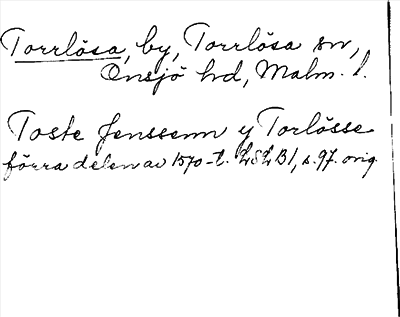 Torrlösa, by, Torrlösa sn,
Onsjö hd, Malm. l.
Toste Jenssenn y Torlösse
förra delen av 1570-t. LSLB1, s. 97. orig